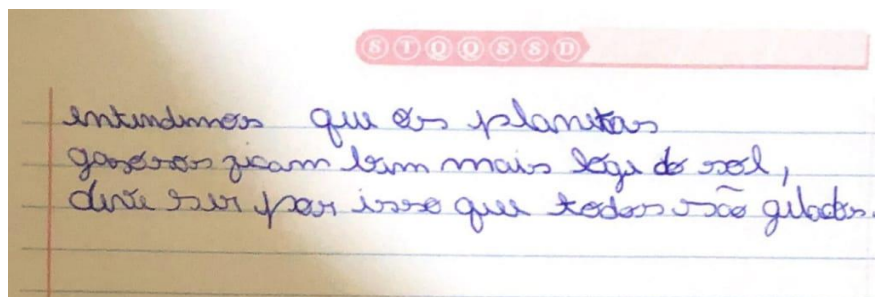 S T Q Q S S D
entendemos que os planetas
gasosos ficam bem mais lógi do sol,
deve ser por isso que todos são gelados.